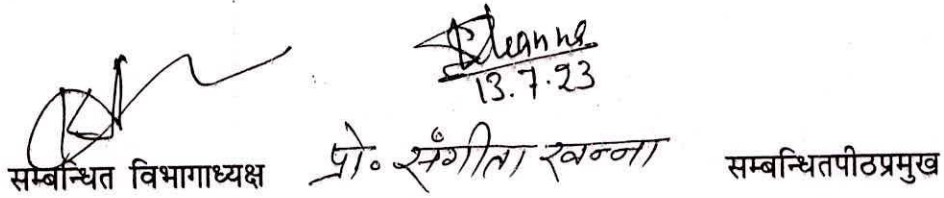 13.7.23
सम्बन्धित विभागाध्यक्ष प्रो. संगीता खन्ना सम्बन्धितपीठप्रमुख